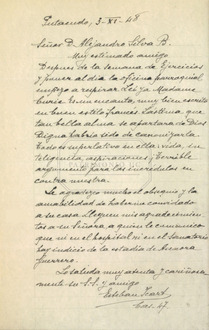 Putaendo, 3-XI-48
Señor D. Alejandro Silva B.
Muy estimado amigo
Después de la semana de Ejercicios
y poner al día la oficina parroquial
empezo a respirar. Leí ya Madame
Curie. Es un encanto, muy bien escrito
en buen estilo francés. Lástima que
tan bella alma se apartara de Dios
Digna habría sido de canonizarla.
Todo es superlativo en ella: vida, in
teligencia, aspiraciones y terrible
argumento para los incrédulos en
contra nuestra.
Le agradezco mucho el obsequio y la
amabilidad de haberme convidado
a su casa. Lleguen mis agradecimien
tos a su Señora, a quien le comunico
que ni en el hospital ni en el Sanatorio
hay indicio de la estadía de
Guerrero.
Lo saluda muy atenta y cariñosa
mente su S.S. y amigo
Esteban